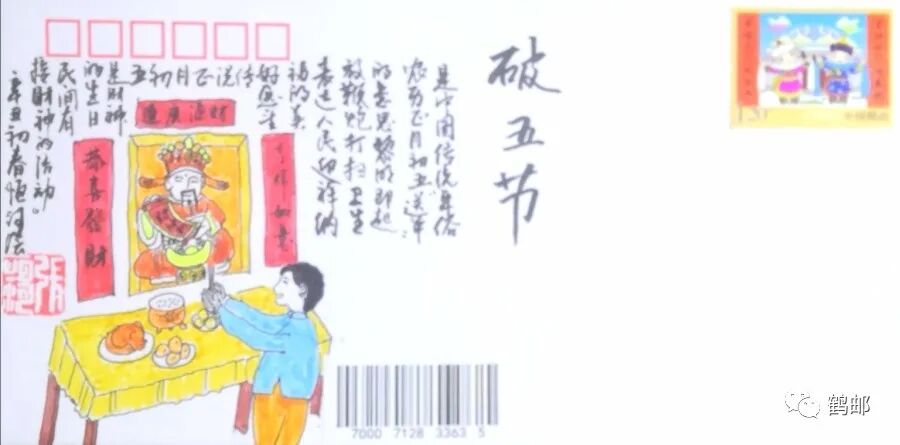 破五节
是中国传统年俗
农历正月初五送年
的意思黎明即起
放鞭炮打扫卫生
表达人民迎祥纳
福的美
好愿望
传说正月初五
是财神
的生日
民间有
接财神的活动。
辛丑初春
財源广進
吉祥如意
恭喜發財
1.20
中国邮政
7000 7128 3363 5
鹤邮